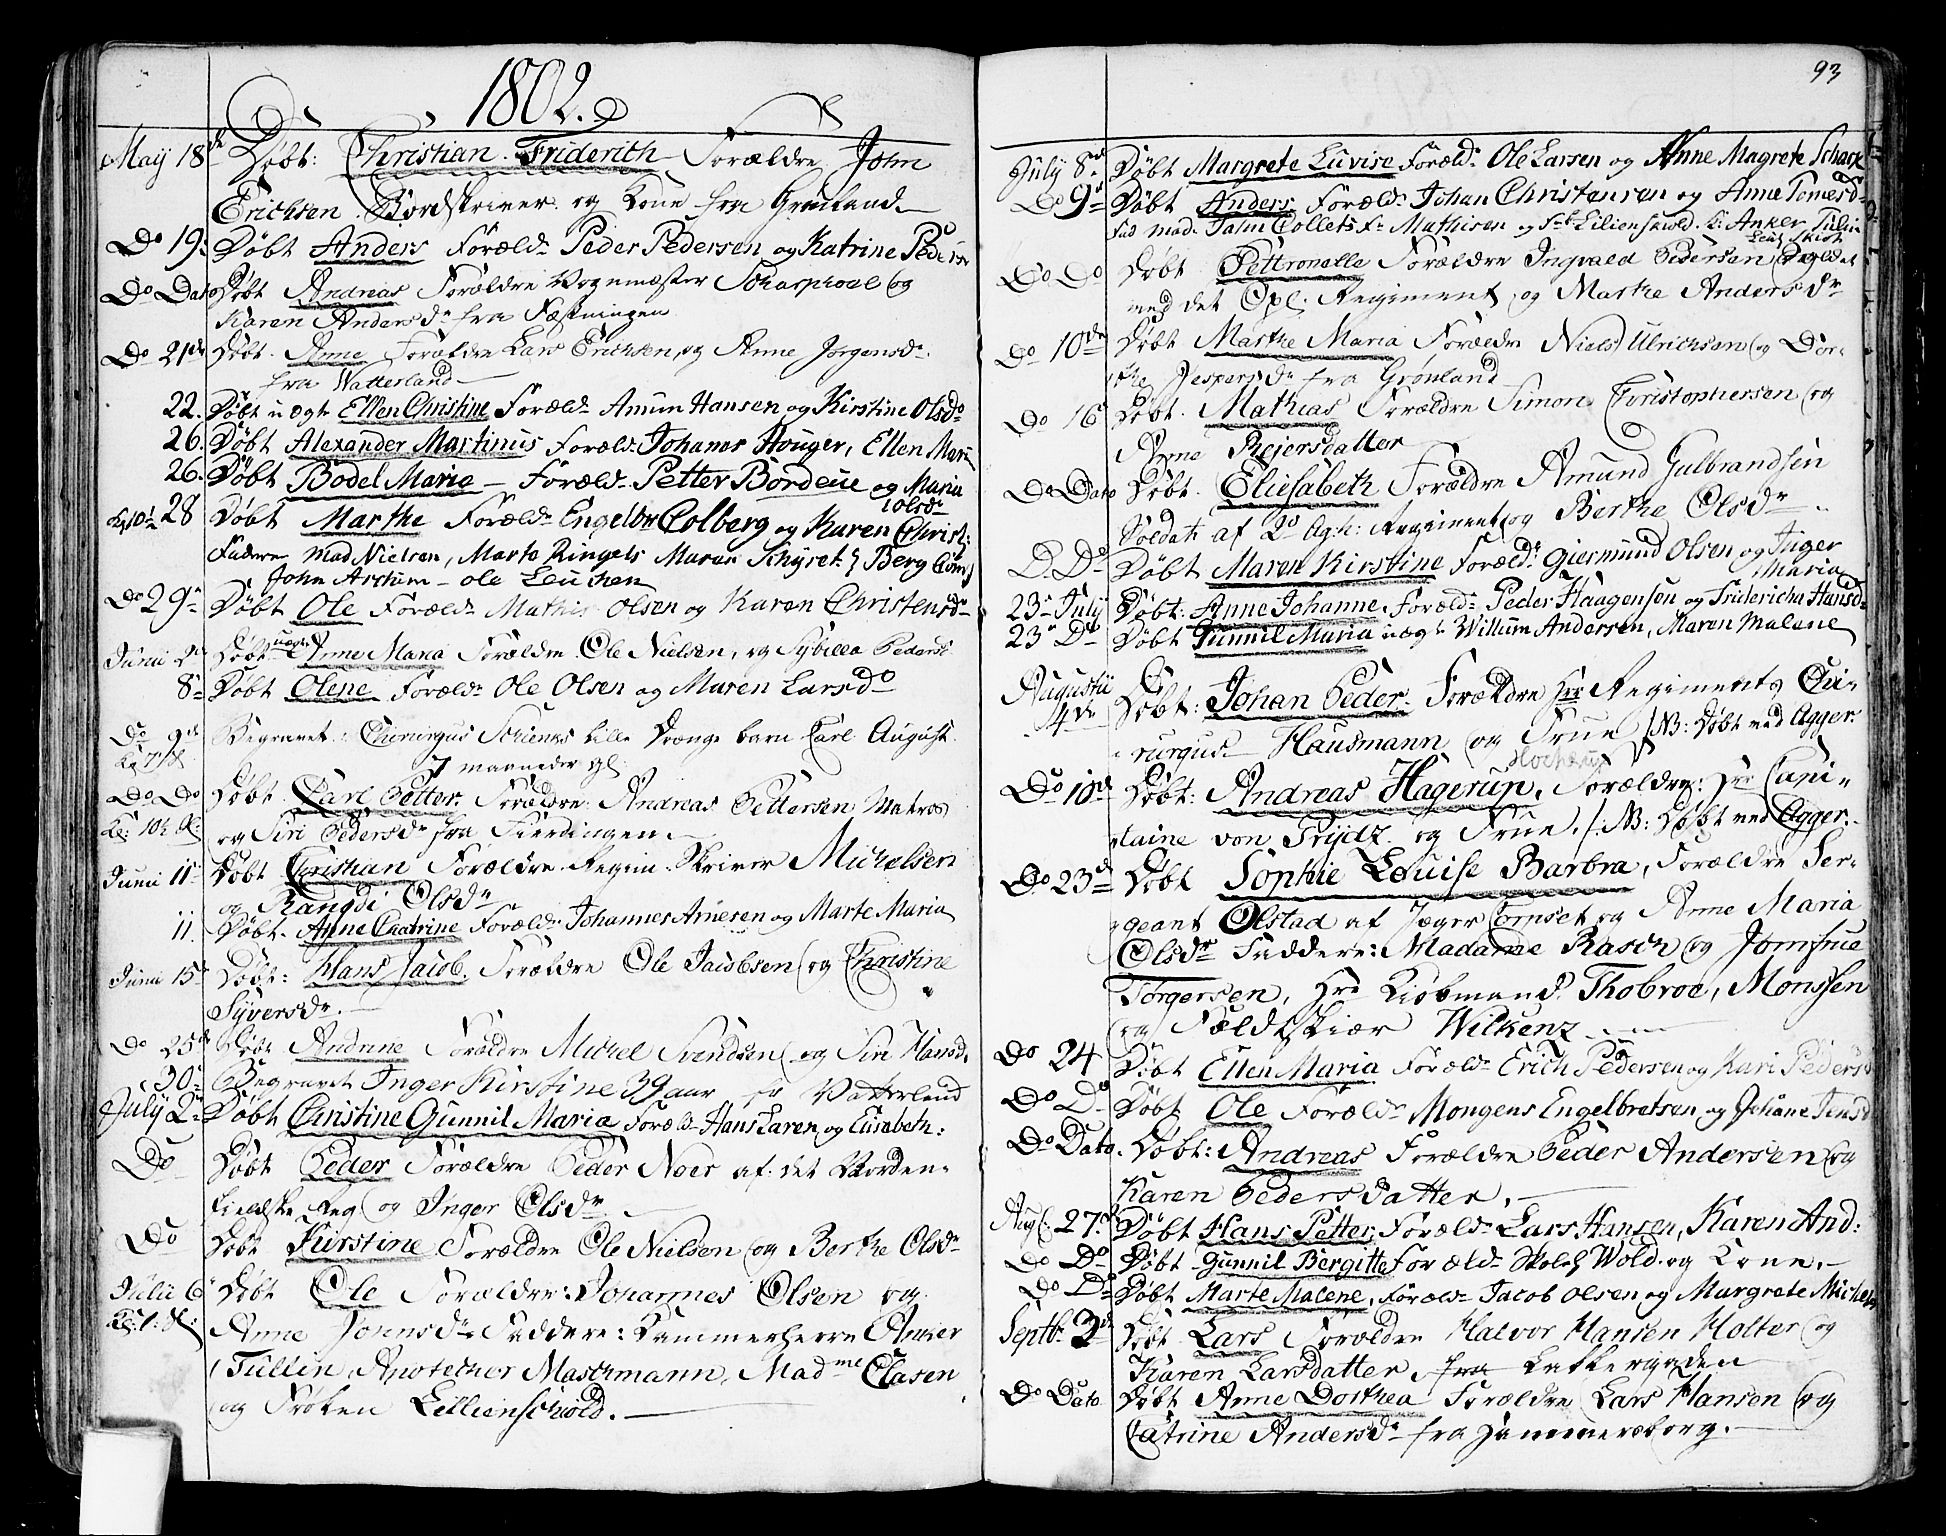 1802.
May 18de Døbt: Christian Friderich Forældre John
Erichsen Bordskriver og Kone fra Grønland
Do 19: Døbt Anders Foræld: Peder Pedersen og Katrine Peders
Do Dato Døbt Andreas Forældre Vognmester Scharphoel og
Karen Andersdr fra Fæstningen
Do 21de Døbt. Anne Forældre Lars Erichsen, og Anne Jørgensdr.
fra Watterland
22. Døbt uægte Ellen Christine Foræld: Amun Hansen og Kirstine Olsdr
26. Døbt Alexander Martinus Foræld: Johanes Houger, Ellen Maria
26. Døbt Bodel Maria – Foræld: Petter Bordene og Maria
Olsdr
28 Døbt Marthe Foræld: Engelbr Colberg og Karen Christ:
Faddere Mad Nielsen, Marte Ringels Maren Schyret } Berg
John Arstun – ole Leuchen
Do 29 Døbt Ole Foræld: Mathis Olsen og Karen Christensdr
Juni Døbt uægte Anne Maria Forældre Ole Nielsen, og Sybilla Peders
8 Døbt Olene Foræld: Ole Olsen og Maren Larsdr
Do 9de Begravet: Chirurgus Schiønes lille Drænge barn Carl August
7 maaneder gl:
Do Do Døbt Carl Petter. Forældre: Andreas Pettersen Matros
Kl: 10½ Sl: og Siri Pedersdr fra Fierdingen
Juni 11 Døbt Christian Forældre Regim: Skriver Michelsen
og Rangdi Olsdr
11. Døbt Anne Chatrine Foræld: Johannes Arnesen og Marte Maria
Juni 15 Døbt: Hans Jacob. Forældre Ole Jacobsen og Christine
Syversdr.
Do 25 Døbt Andrine Forældre Michel Svendsen og Siri Hansd.
30 Begravet Inger Kirstine 39 aar fr Vatterland
July 2 Døbt Christine Gunnil Maria Foræld: Hans Laren og Elisabeth:
Do Døbt Peder Forældre Peder Noer af det Norden-
fieldske Reg og Inger Olsdr.
Do Døbt Kirstine Forældre Ole Nielsen og Berthe Olsdr
Julii 6 Døbt Ole Forældre: Johannes Olsen og
Anne Jonnsdr. Faddere: Kammerherre Anker
Tullin, Apotecher Maschmann, Mad:me Clasen
og Frøken Lillienschiold.
93
July 8 Døbt Margrete Luvise Foræld: Ole Larsen og Anne Magrete Scharp
Do 9 Døbt Anders Foræld: Johan Christensen og Anne Tomesd
Fad mad: Jahn Collets Fr Mathisen og Frk Lilienskiold. K: Anker Tulin
Leut Skiot
Do Do Døbt Pettronelle Forældre Ingvald Pedersen Soldat
med det Opl: Regiment og Marthe Andersdr
Do 10de Døbt Marthe Maria Forældre Niels Ulrichsen og Dor-
the Jespersdr fra Grønland
Do 16 Døbt. Mathias Forældre Simon Christophersen og
Anne Reiersdatter
Do Dato Døbt. Eliesabeth Forældre Amund Gulbrandsen
Soldat af 2 Agh: Regiment og Berthe Olsdr
D. Do Døbt Maren Kirstine Foræld: Giermund Olsen og Inger
Maria
23 July Døbt: Anne Johanne. Foræld: Peder Haagensen og Fridericha Hansd
23 Do Døbt Gunnil Maria uægte Willum Andersen, Maren Malene
Augustii
4de Døbt: Johan Peder. Forældre Hrr Regiments Chi-
rurgus Hausmann og Frue /NB: Døbt ved Agger.
Do 10de Døbt: Andreas Hagerup, Forældre: Hrr Capi-
taine von Prijdz og Frue. /: NB: Døbt ved Agger.
Do 23 Døbt Sophie Louise Barbra, Forældre Ser-
geant Olstad af Jæger Corpset og Anne Maria
Olsdr Faddere: Madame Rasch og Jomfrue
Torgersen, Hrr Kiøbmand Thobroe, Monssen
og Feldtskiær Wilkenz
Do 24 Døbt Ellen Maria Foræld: Erich Pedersen og Kari Peders
Do D Døbt Ole Foræld: Mongens Engelbretsen og Johane Jens
Do Dato. Døbt: Andreas Forældre Peder Andersen og
Karen Pedersdatter.
Aug: 27. Døbt Hans Petter Foræld: Lars Hansen, Karen And:
Do Do Døbt Gunnil Bergitte Foræld: Wold. og Kone.
Do Do Døbt Marte Malene, Foræld: Jacob Olsen og Margrete Michels
Septbr 3de Døbt Lars Forældre Halvor Hansen Holter og
Karen Larsdatter, fra Lakkergaden
Do Dato Døbt Anne Dorthea Forældre Lars Hansen og
Catrine Andersdr fra Hammersborg.